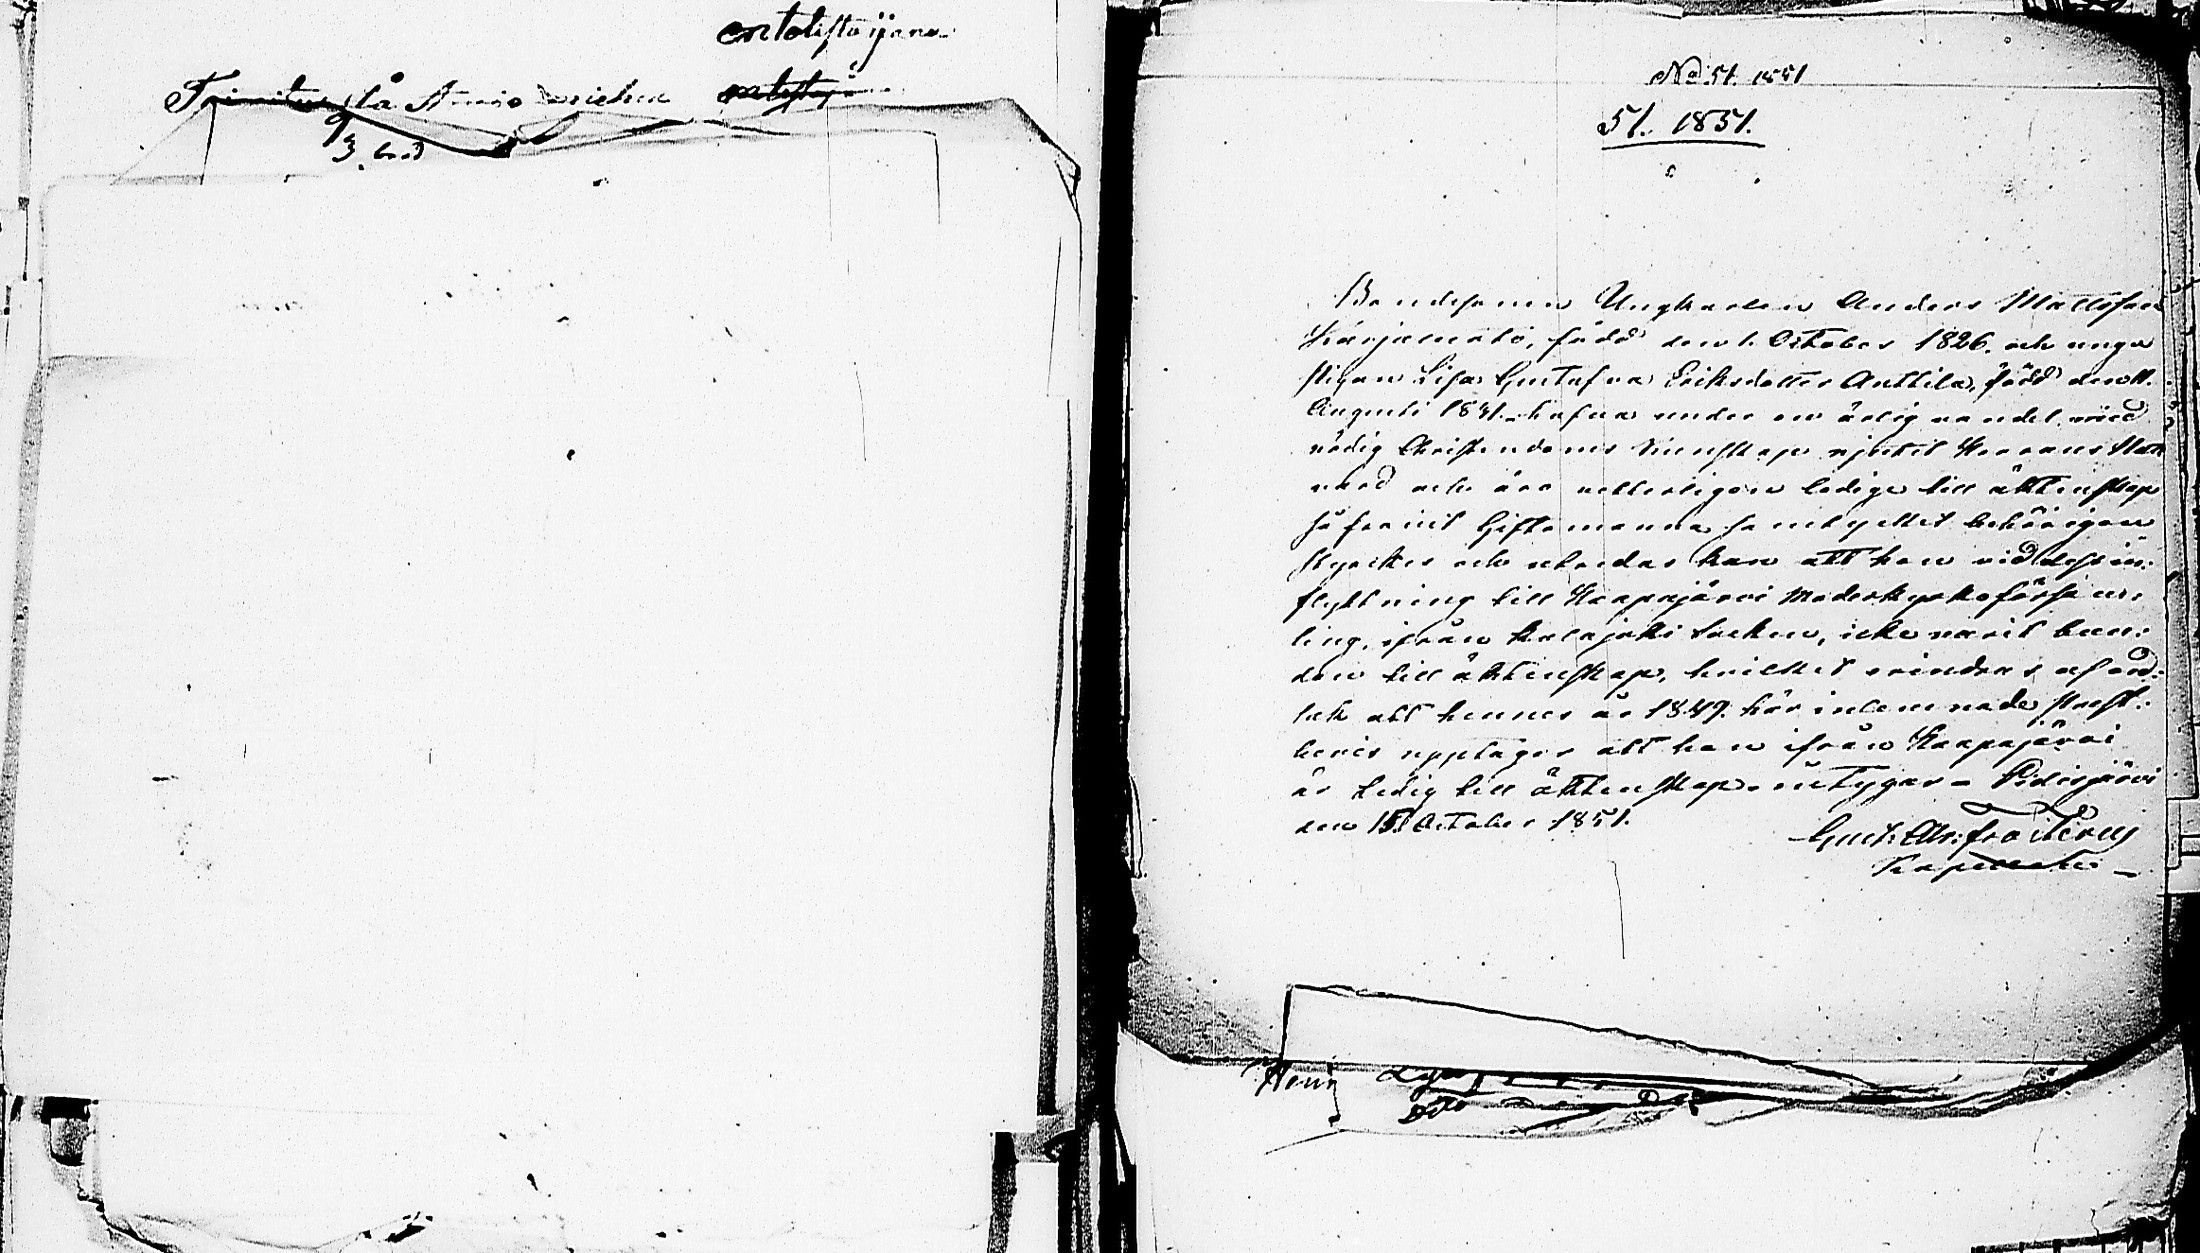 No 51. 1851
51. 1851.
Bondesonen Ungkarlen Anders Mattsson
Karjaluoto, född den 1. October 1826. och unga
pigan Lisa Gustafva Eriksdotter Anttila, född den 11.
Augusti 1831. hafva under en ärlig vandel med
nödig Christendoms kunskap njutit Herrans Natt
vard och äro vetterligen ledige till äktenskap
såframt Giftomanna samtycket behörigen
styrkes och utredas kan att hon vid dess in-
flyttning till Haapajärvi Moderkyrkoförsam-
ling, ifrån Kalajoki socken, icke varit bun-
den till äktenskap, hvilket erindras af or-
sak att hennes år 1849. här inlemnade Prest-
bevis upptager att hon ifrån Haapajärvi
är ledig till äktenskap. intygar - Pidisjärvi
den 15 October 1851.
Gust. Abr. Frosterus
Kapellan